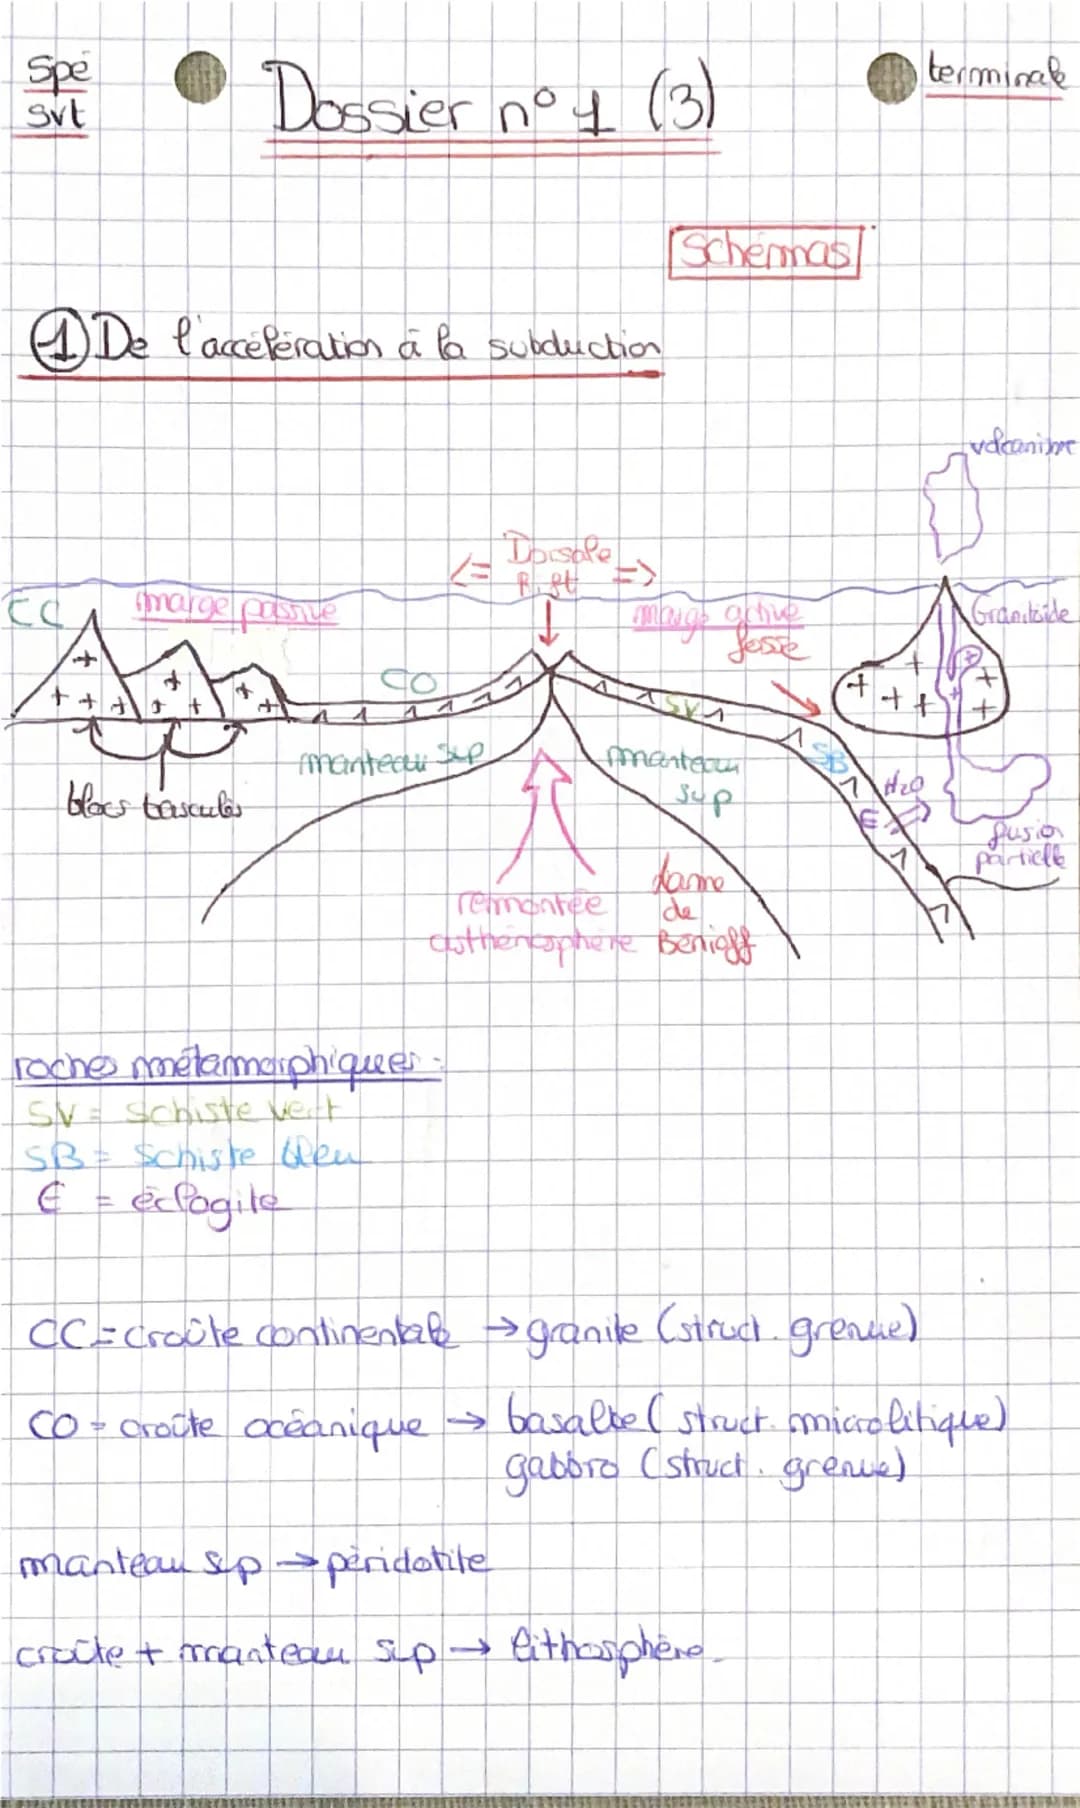 Spé
svt
Dossier n° 1 (3)
terminale
Schémas
① De l'accélération à la subduction
volcanisme
<= Dorsale =>
Rift
CC
marge passive
marge active
fosse
Granitoïde
CO
SV
manteau sup
manteau
sup
SB
H2O
E
blocs basculés
fusion
partielle
remontée
asthénosphère
lame
de
Bénioff
roches métamorphiques :
SV = schiste vert
SB = Schiste bleu
E = éclogite
CC = croûte continentale → granite (struct. grenue)
CO = croûte océanique → basalte ( struct. microlitique)
gabbro (struct. grenue)
manteau sup → péridotite
croûte + manteau sup → lithosphère.